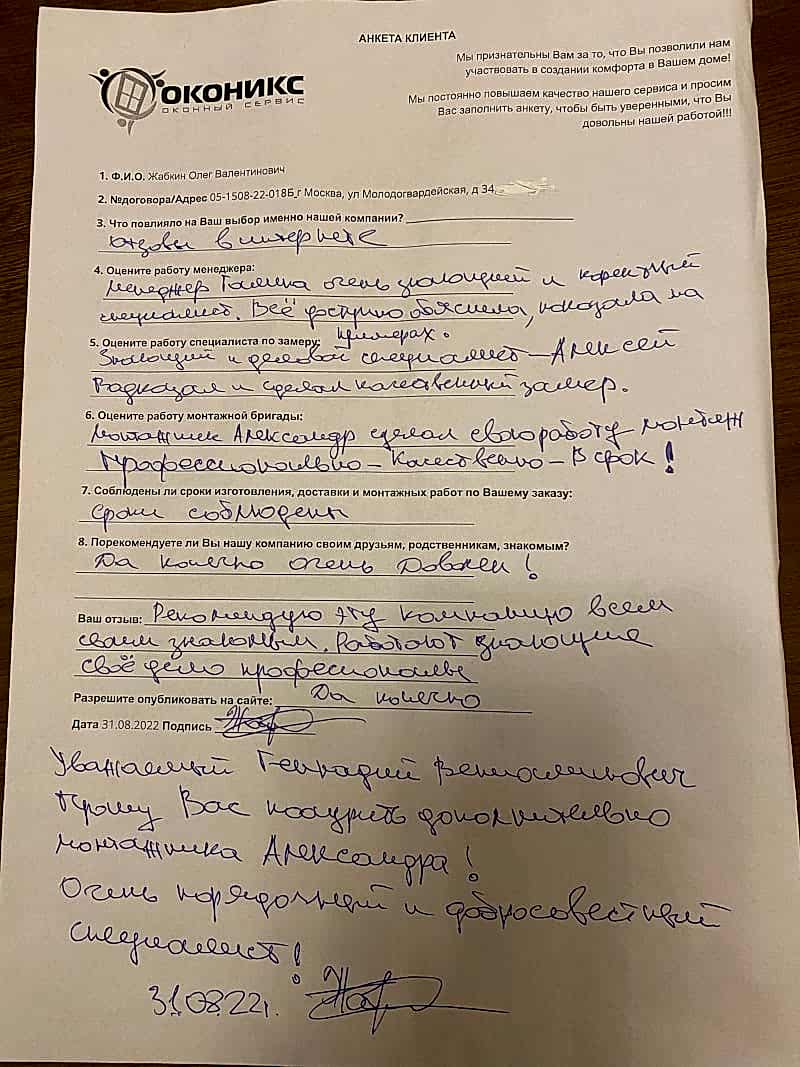 АНКЕТА КЛИЕНТА
ОКОНИКС
ОКОННЫЙ СЕРВИС
Мы признательны Вам за то, что Вы позволили нам
участвовать в создании комфорта в Вашем доме!
Мы постоянно повышаем качество нашего сервиса и просим
Вас заполнить анкету, чтобы быть уверенными, что Вы
довольны нашей работой!!!
1. Ф.И.О. Жабкин Олег Валентинович
2. №договора/Адрес 05-1508-22-018Б_г Москва, ул Молодогвардейская, д 34,
3. Что повлияло на Ваш выбор именно нашей компании?
отзовы в интернете
4. Оцените работу менеджера:
Менеджер Галина очень знающий и коректный
специалист. Всё доступно объяснила, показала на
примерах.
5. Оцените работу специалиста по замеру:
Знающий и деловой специалист – Алексей
Подсказал и сделал качественный замер.
6. Оцените работу монтажной бригады:
Монтажник Александр сделал свою работу монтаж
Профессионально – Качественно – В срок!
7. Соблюдены ли сроки изготовления, доставки и монтажных работ по Вашему заказу:
сроки соблюдены
8. Порекомендуете ли Вы нашу компанию своим друзьям, родственникам, знакомым?
Да конечно очень Доволен!
Ваш отзыв: Рекомендую эту компанию всем
своим знакомым. Работают знающие
своё дело профессионалы
Разрешите опубликовать на сайте: Да конечно
Дата 31.08.2022 Подпись
Уважаемый Геннадий Вениаминович
Прошу Вас поощрить дополнительно
монтажника Александра!
Очень порядочный и добросовестный
специалист!
31.08.22г.